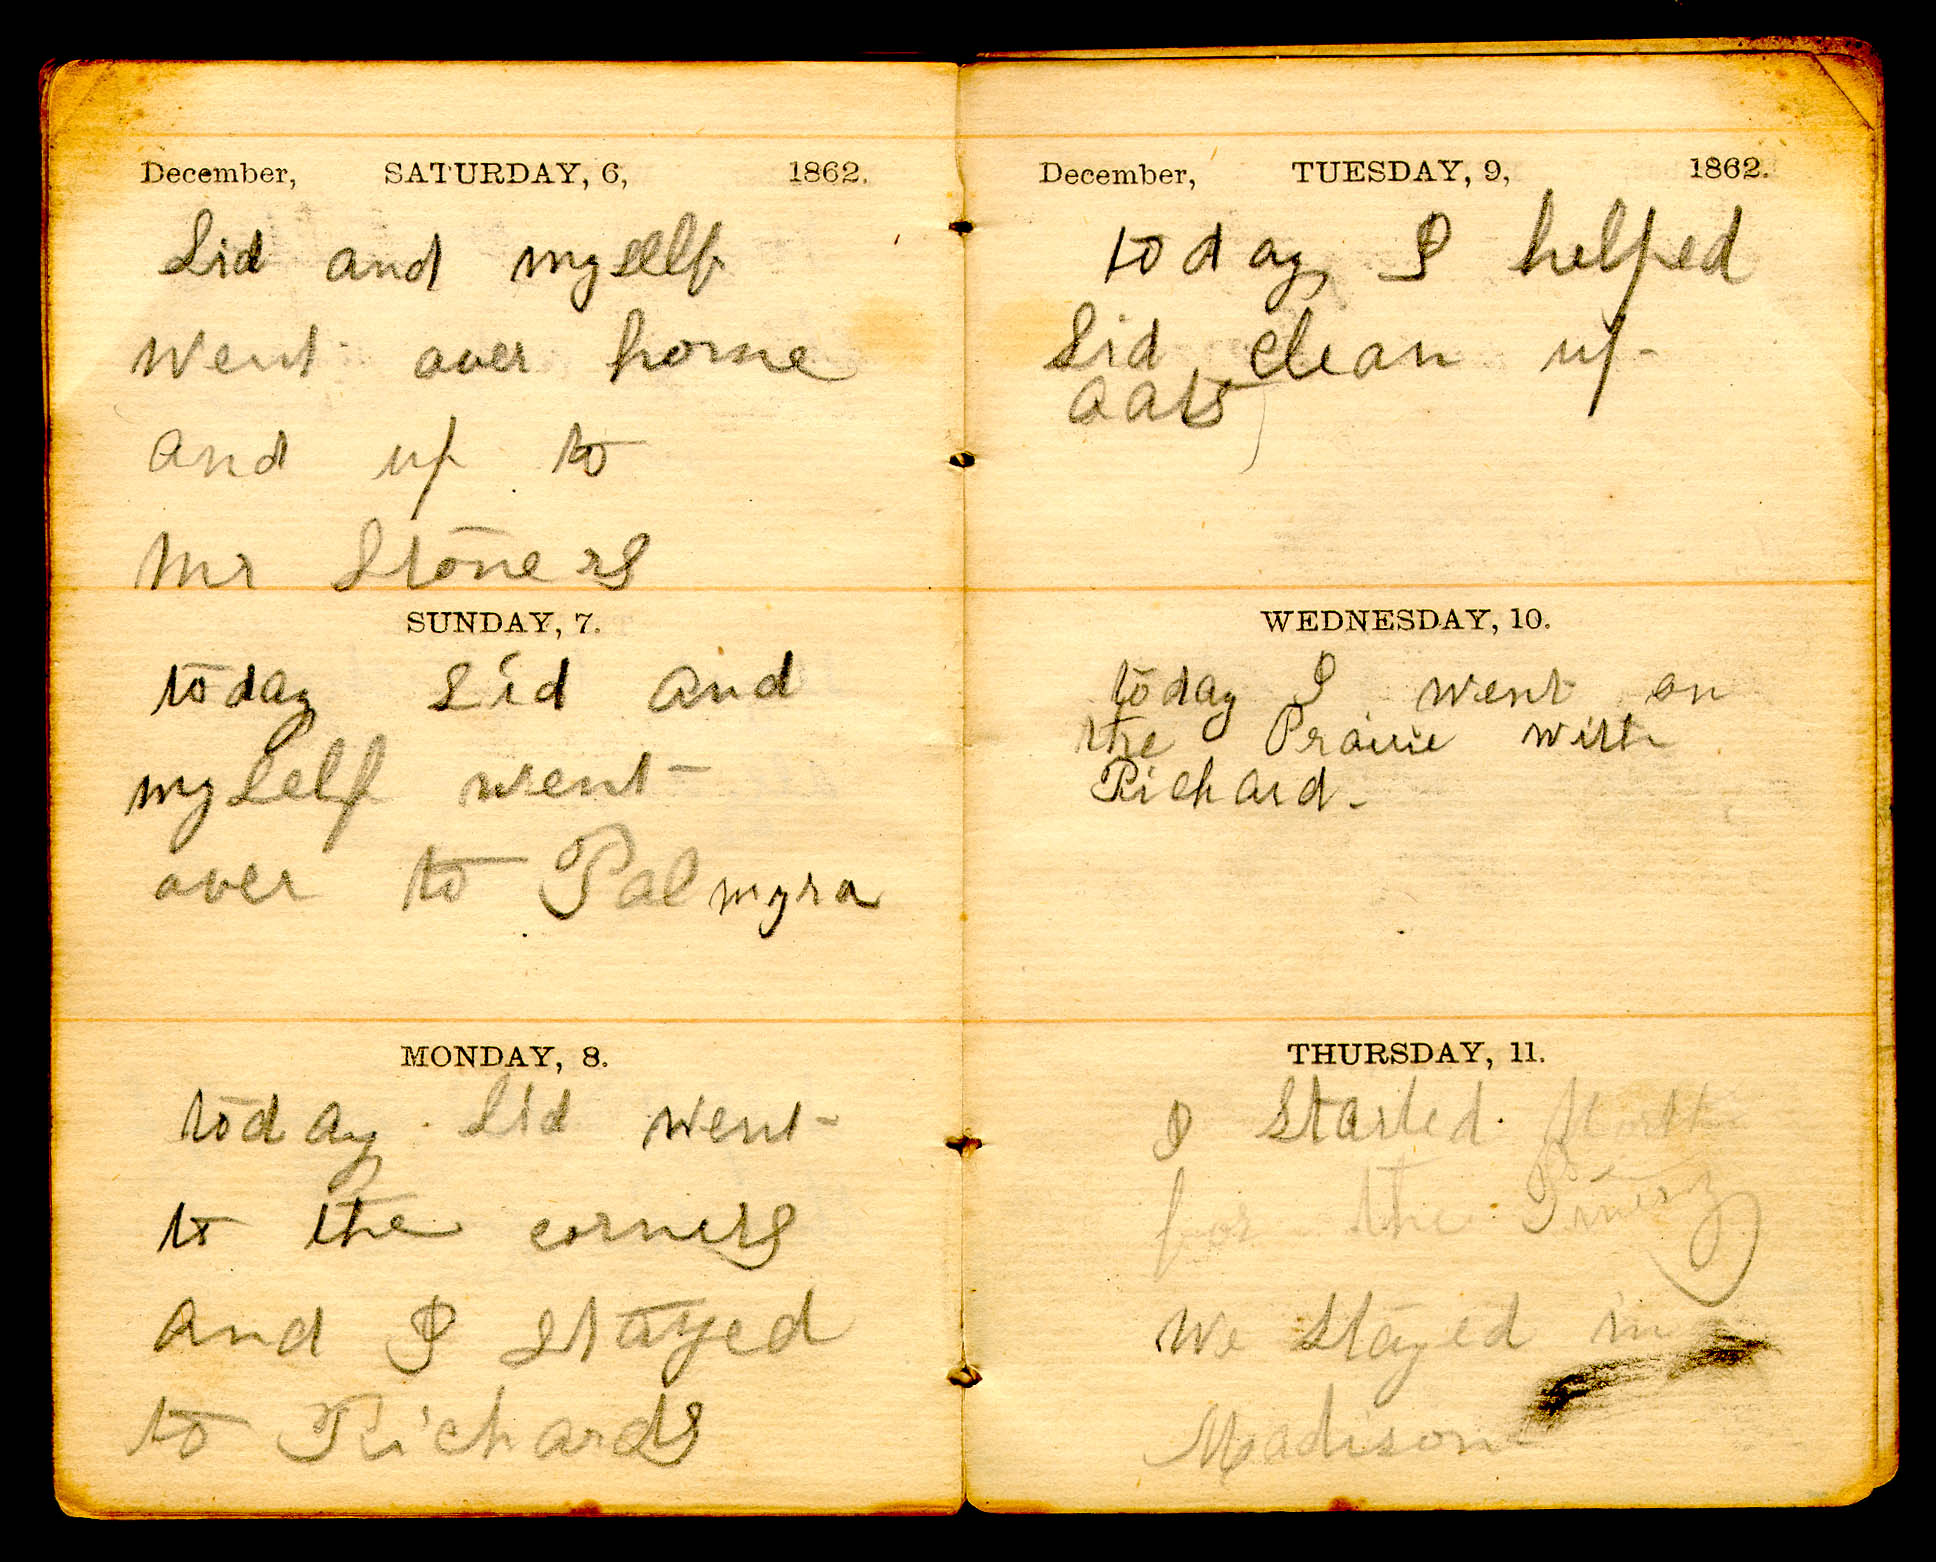 December, SATURDAY, 6, 1862.
Sid and myself
went over home
and up to
Mr Stoners
SUNDAY, 7.
today Sid and
myself went
over to Palmyra
MONDAY, 8.
today Sid went
to the corners
and I stayed
to Richards
December, TUESDAY, 9, 1862.
today I helped
Sid clean up
oats
WEDNESDAY, 10.
today I went on
the Prairie with
Richard.
THURSDAY, 11.
I Started North
for the Pinery
We Stayed in
Madison